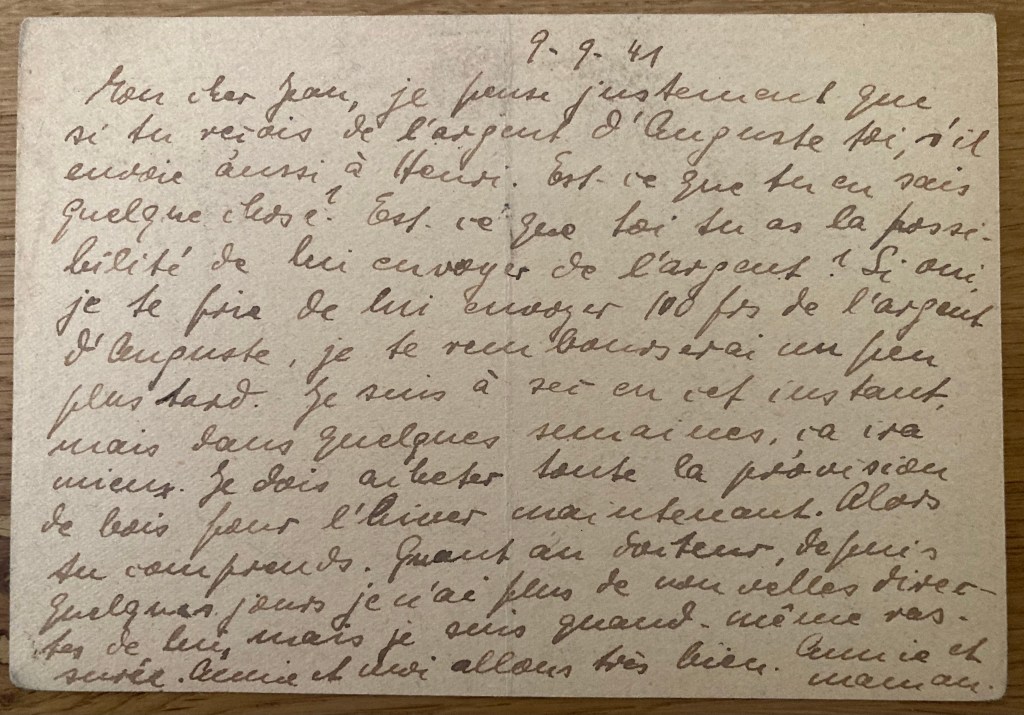 9-9-41
Mon cher Jean, je pense justement que
si tu reçois de l'argent d'Auguste toi, s'il
envoie aussi à Henri. Est-ce que tu en sais
quelque chose? Est-ce que toi tu as la possi-
bilité de lui envoyer de l'argent? Si oui,
je te prie de lui envoyer 100 frs de l'argent
d'Auguste, je te rembourserai un peu
plus tard. Je suis à sec en cet instant,
mais dans quelques semaines, ça ira
mieux. Je dois acheter toute la provision
de bois pour l'hiver maintenant. Alors
tu comprends. Quant au docteur, depuis
quelques jours je n'ai plus de nouvelles direc-
tes de lui, mais je suis quand-même ras-
surée. Annie et moi allons très bien. Annie et
maman.